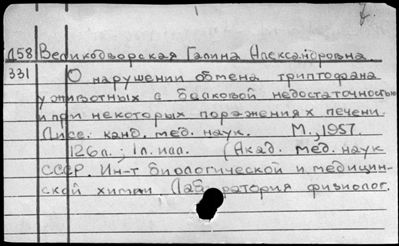 Д58 Великодворская Галина Александровна.
331 О нарушении обмена триптофана
у животных с белковой недостаточностью
и при некоторых поражениях печени.
Дисс. канд. мед. наук. М., 1957.
126л.; 1л. илл. (Акад. мед. наук
СССР. Ин-т биологической и медицин-
ской химии. Лаборатория физиолог.